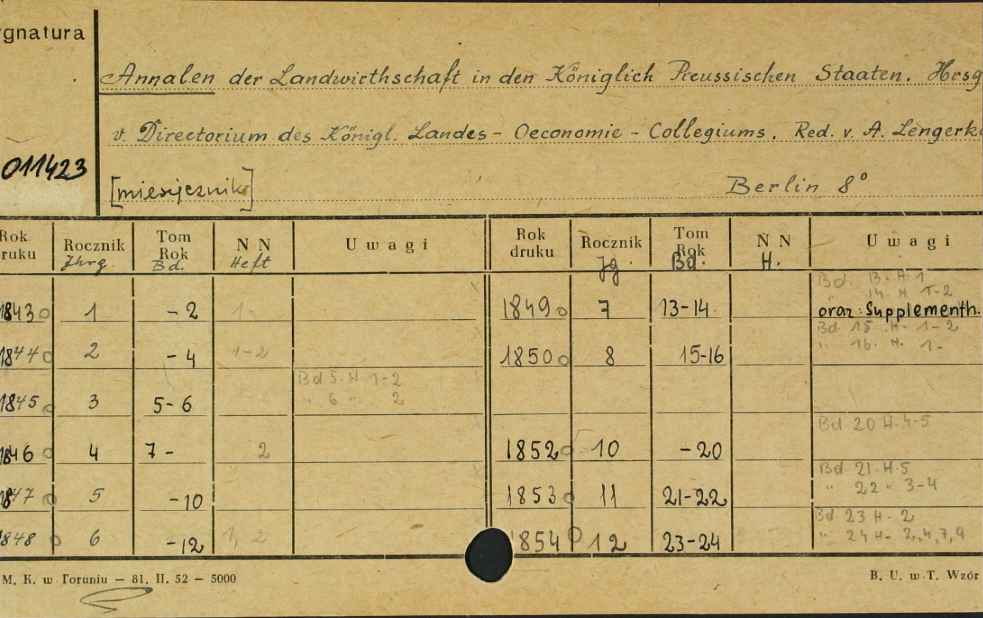 ygnatura
Annalen der Landwirthschaft in den Königlich Preussischen Staaten. Hrsg
v. Directorium des Königl. Landes- Oeconomie - Collegiums. Red. v. A. Lengerke
011423
[miesięcznik]
Berlin 8°
Rok druku | Rocznik Jhrg. | Tom Rok Bd. | N N Heft | Uwagi | Rok druku | Rocznik Jg. | Tom Rok Bd. | N N H. | Uwagi
1843 | 1 | - 2 | 1- | | 1849 | 7 | 13-14 | | Bd. 13. H. 1 " 14. H 1-2 oraz: Supplementh.
1844 | 2 | - 4 | 1-2 | | 1850 | 8 | 15-16 | | Bd 15 H. 1-2 " 16. H. 1-
1845 | 3 | 5-6 | | Bd 5. H 1-2 " 6 " 2
1846 | 4 | 7- | 2 | | 1852 | 10 | -20 | | Bd 20 H. 4-5
1847 | 5 | -10 | | | 1853 | 11 | 21-22 | | Bd 21. H. 5 " 22 " 3-4
1848 | 6 | -12 | 1, 2 | | 1854 | 12 | 23-24 | | Bd 23 H - 2 " 24 H- 2,4,7,9
M. K. w Toruniu — 81. II. 52 — 5000
B. U. w T. Wzór